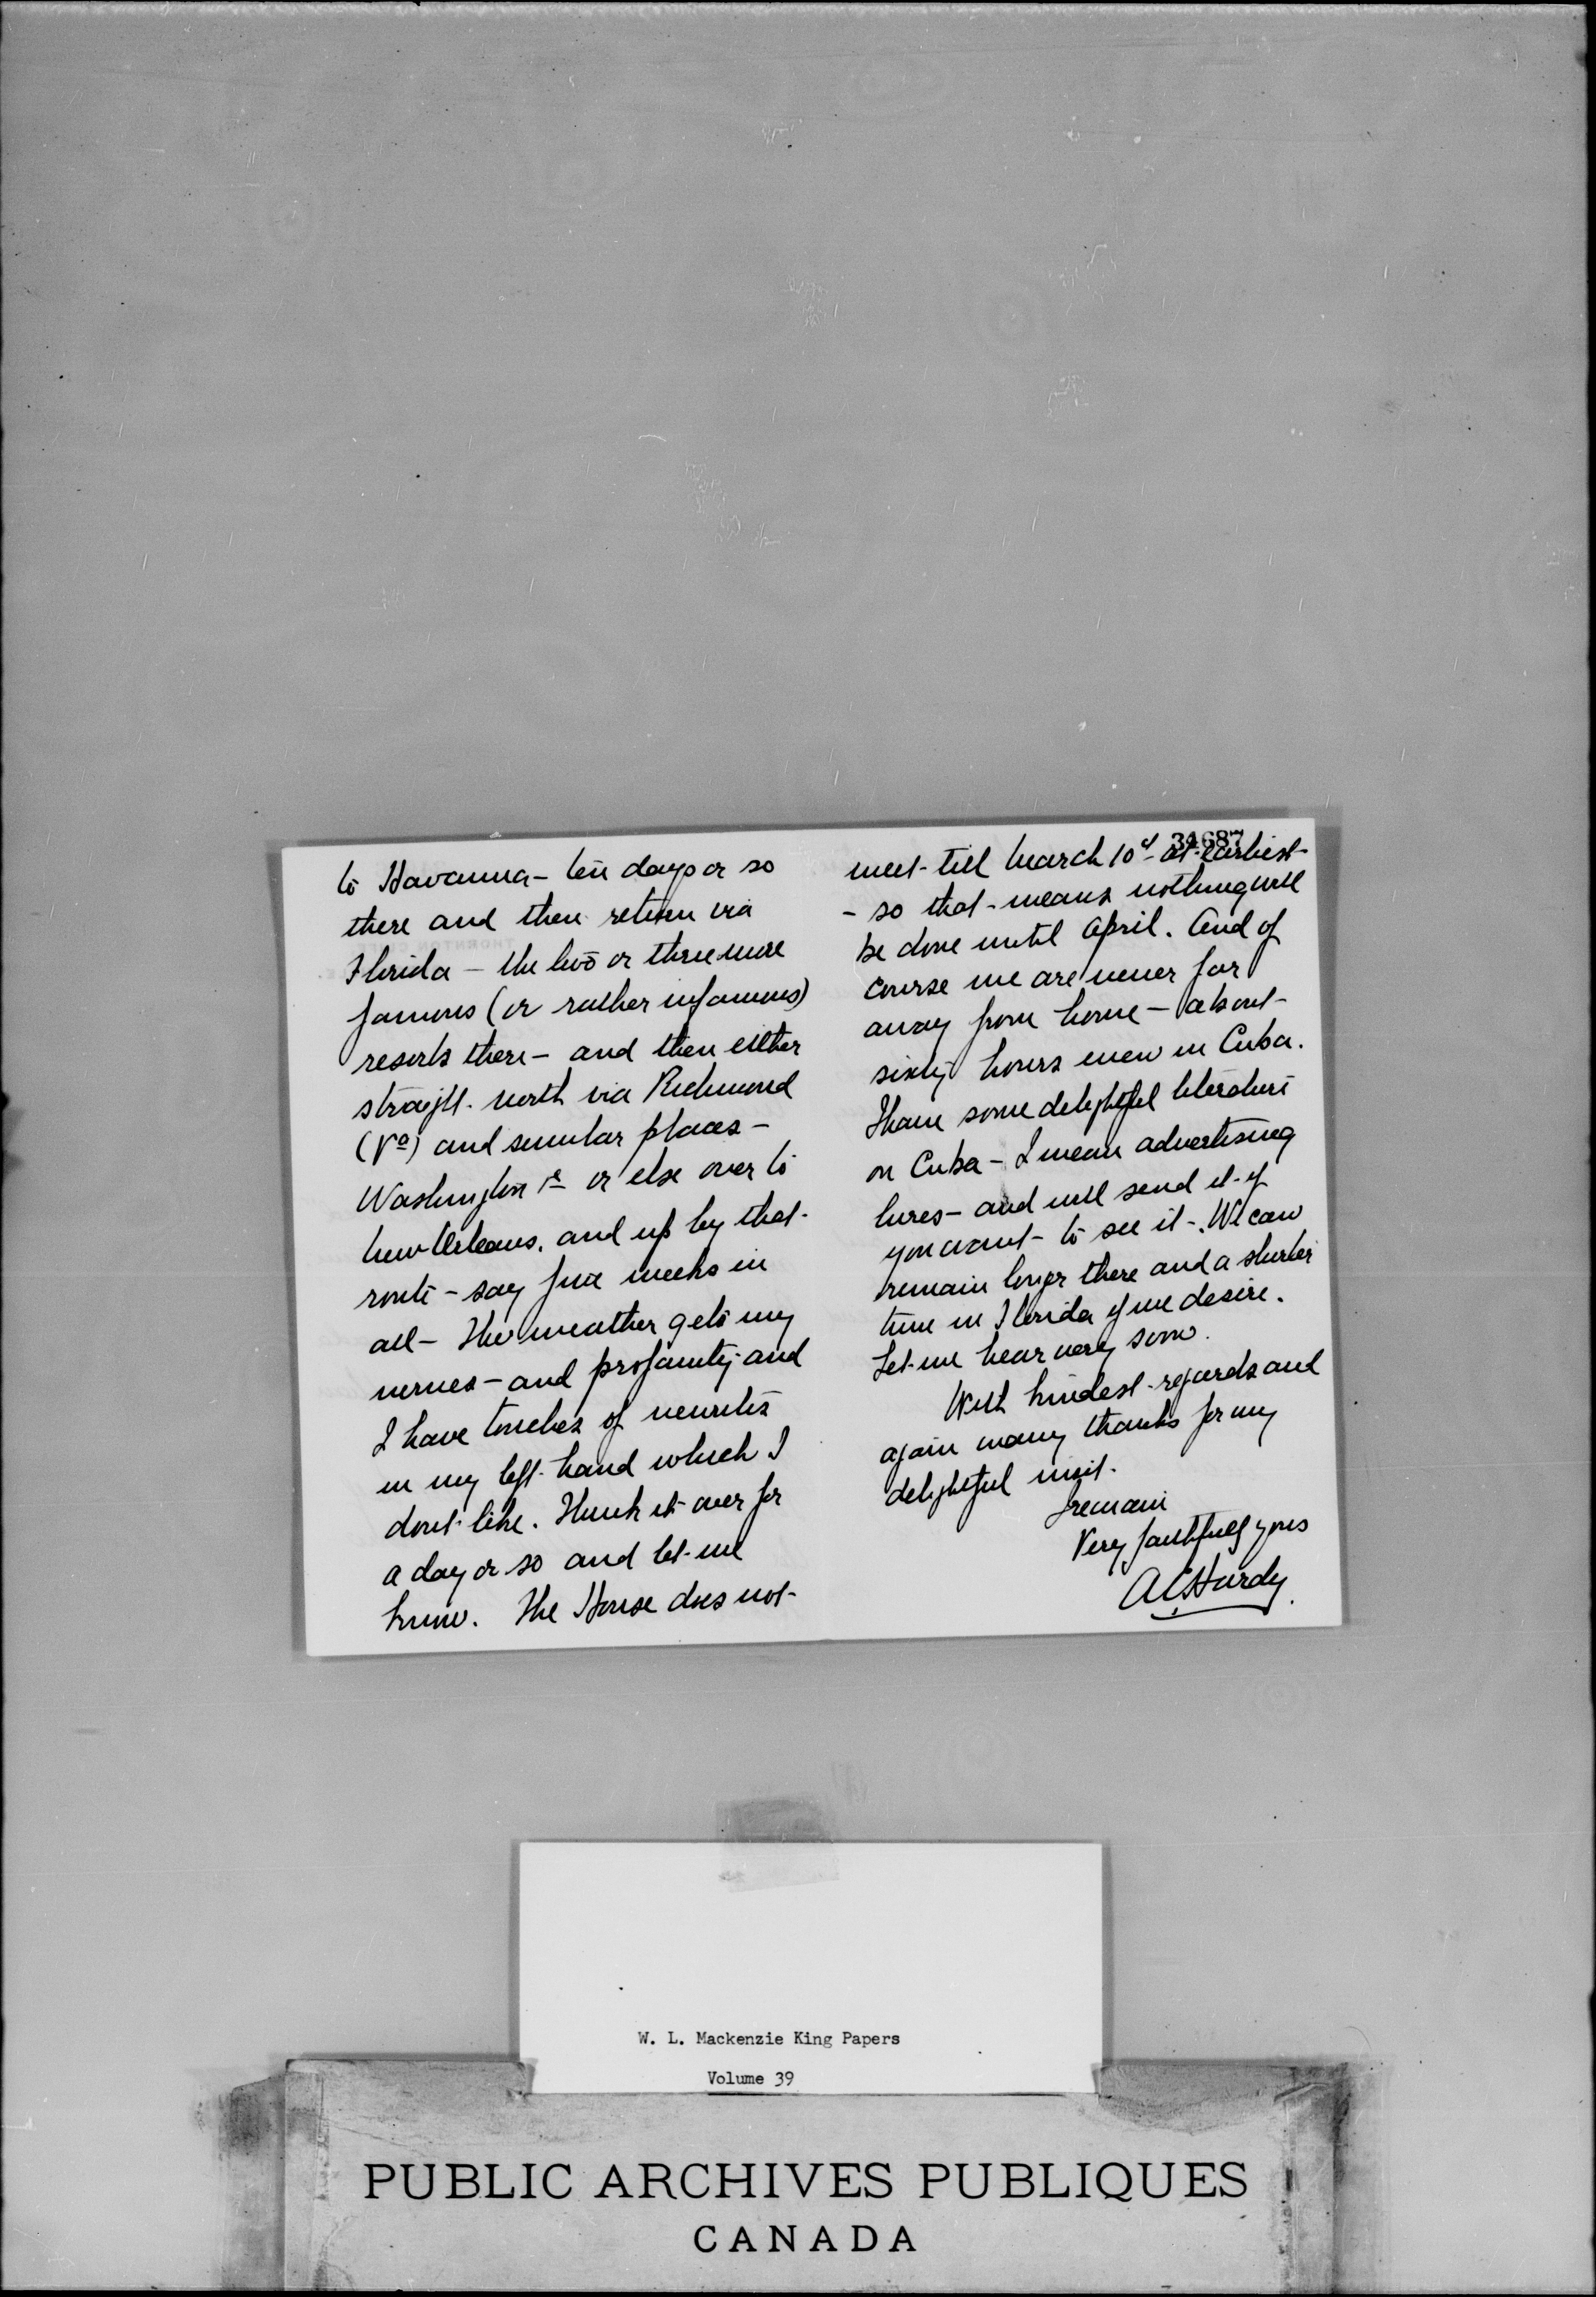 to Havanna - ten days or so
there and then return via
Florida - the two or three more
famous (or rather infamous)
resorts there - and then either
straight north via Richmond
(Va) and similar places -
Washington &c or else over to
New Orleans. and up by that
route - say five weeks in
all - The weather gets my
nerves - and profanity and
I have touches of neuritis
in my left hand which I
dont like. Think it over for
a day or so and let me
know. The House does not
34687
meet till March 10th at earliest
- so that means nothing will
be done until April. And of
course we are never far
away from home - about
sixty hours even in Cuba.
I have some delightful literature
on Cuba - I mean advertising
lures - and will send it if
you want to see it - We can
remain longer there and a shorter
time in Florida if we desire.
Let me hear very soon.
With kindest regards and
again many thanks for my
delightful visit.
I remain
Very faithfully yours
A C Hardy.
W. L. Mackenzie King Papers
Volume 39
PUBLIC ARCHIVES PUBLIQUES
CANADA